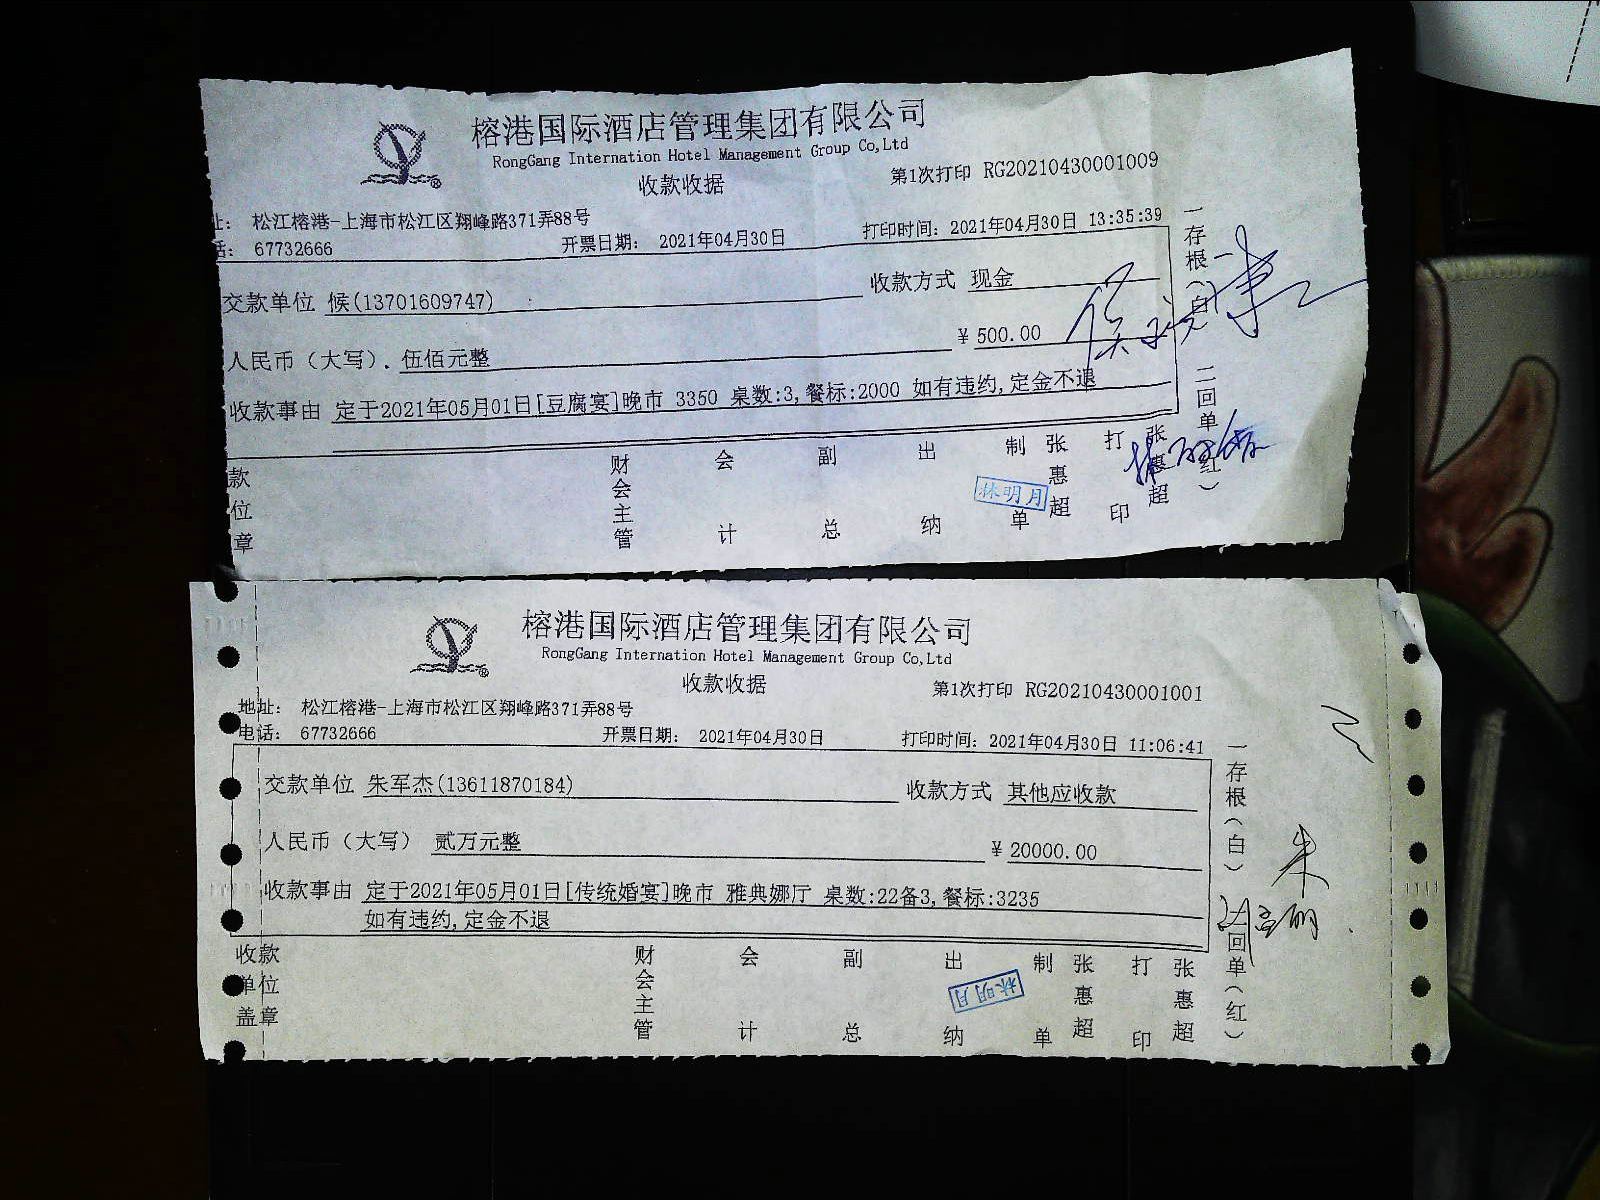 榕港国际酒店管理集团有限公司
RongGang Internation Hotel Management Group Co,Ltd
收款收据
第1次打印 RG20210430001009
址： 松江榕港-上海市松江区翔峰路371弄88号
话： 67732666
开票日期： 2021年04月30日
打印时间：2021年04月30日 13:35:39
交款单位 候(13701609747)
收款方式 现金
人民币（大写）. 伍佰元整
￥500.00
收款事由 定于2021年05月01日[豆腐宴]晚市 3350 桌数:3,餐标:2000 如有违约,定金不退
一存根（白） 二回单（红）
款位章
财会主管
会计
副总
出纳
林明月
制单
张惠超
打印
张惠超
榕港国际酒店管理集团有限公司
RongGang Internation Hotel Management Group Co,Ltd
收款收据
第1次打印 RG20210430001001
地址： 松江榕港-上海市松江区翔峰路371弄88号
电话： 67732666
开票日期： 2021年04月30日
打印时间：2021年04月30日 11:06:41
交款单位 朱军杰(13611870184)
收款方式 其他应收款
人民币（大写） 贰万元整
￥20000.00
收款事由 定于2021年05月01日[传统婚宴]晚市 雅典娜厅 桌数:22备3,餐标:3235
如有违约,定金不退
一存根（白） 二回单（红）
朱
收款单位盖章
财会主管
会计
副总
出纳
林明月
制单
张惠超
打印
张惠超